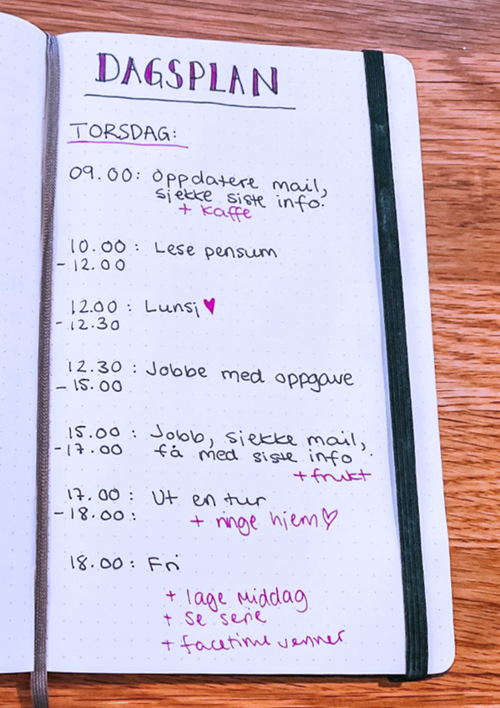 DAGSPLAN
TORSDAG:
09.00: Oppdatere mail,
sjekke siste info.
+ Kaffe
10.00 : Lese pensum
- 12.00
12.00 : Lunsj ♥
- 12.30
12.30 : Jobbe med oppgave
- 15.00
15.00 : Jobb, sjekke mail,
- 17.00 få med siste info.
+ frukt
17.00 : Ut en tur
- 18.00 : + ringe hjem ♡
18.00 : Fri
+ lage middag
+ se serie
+ facetime venner